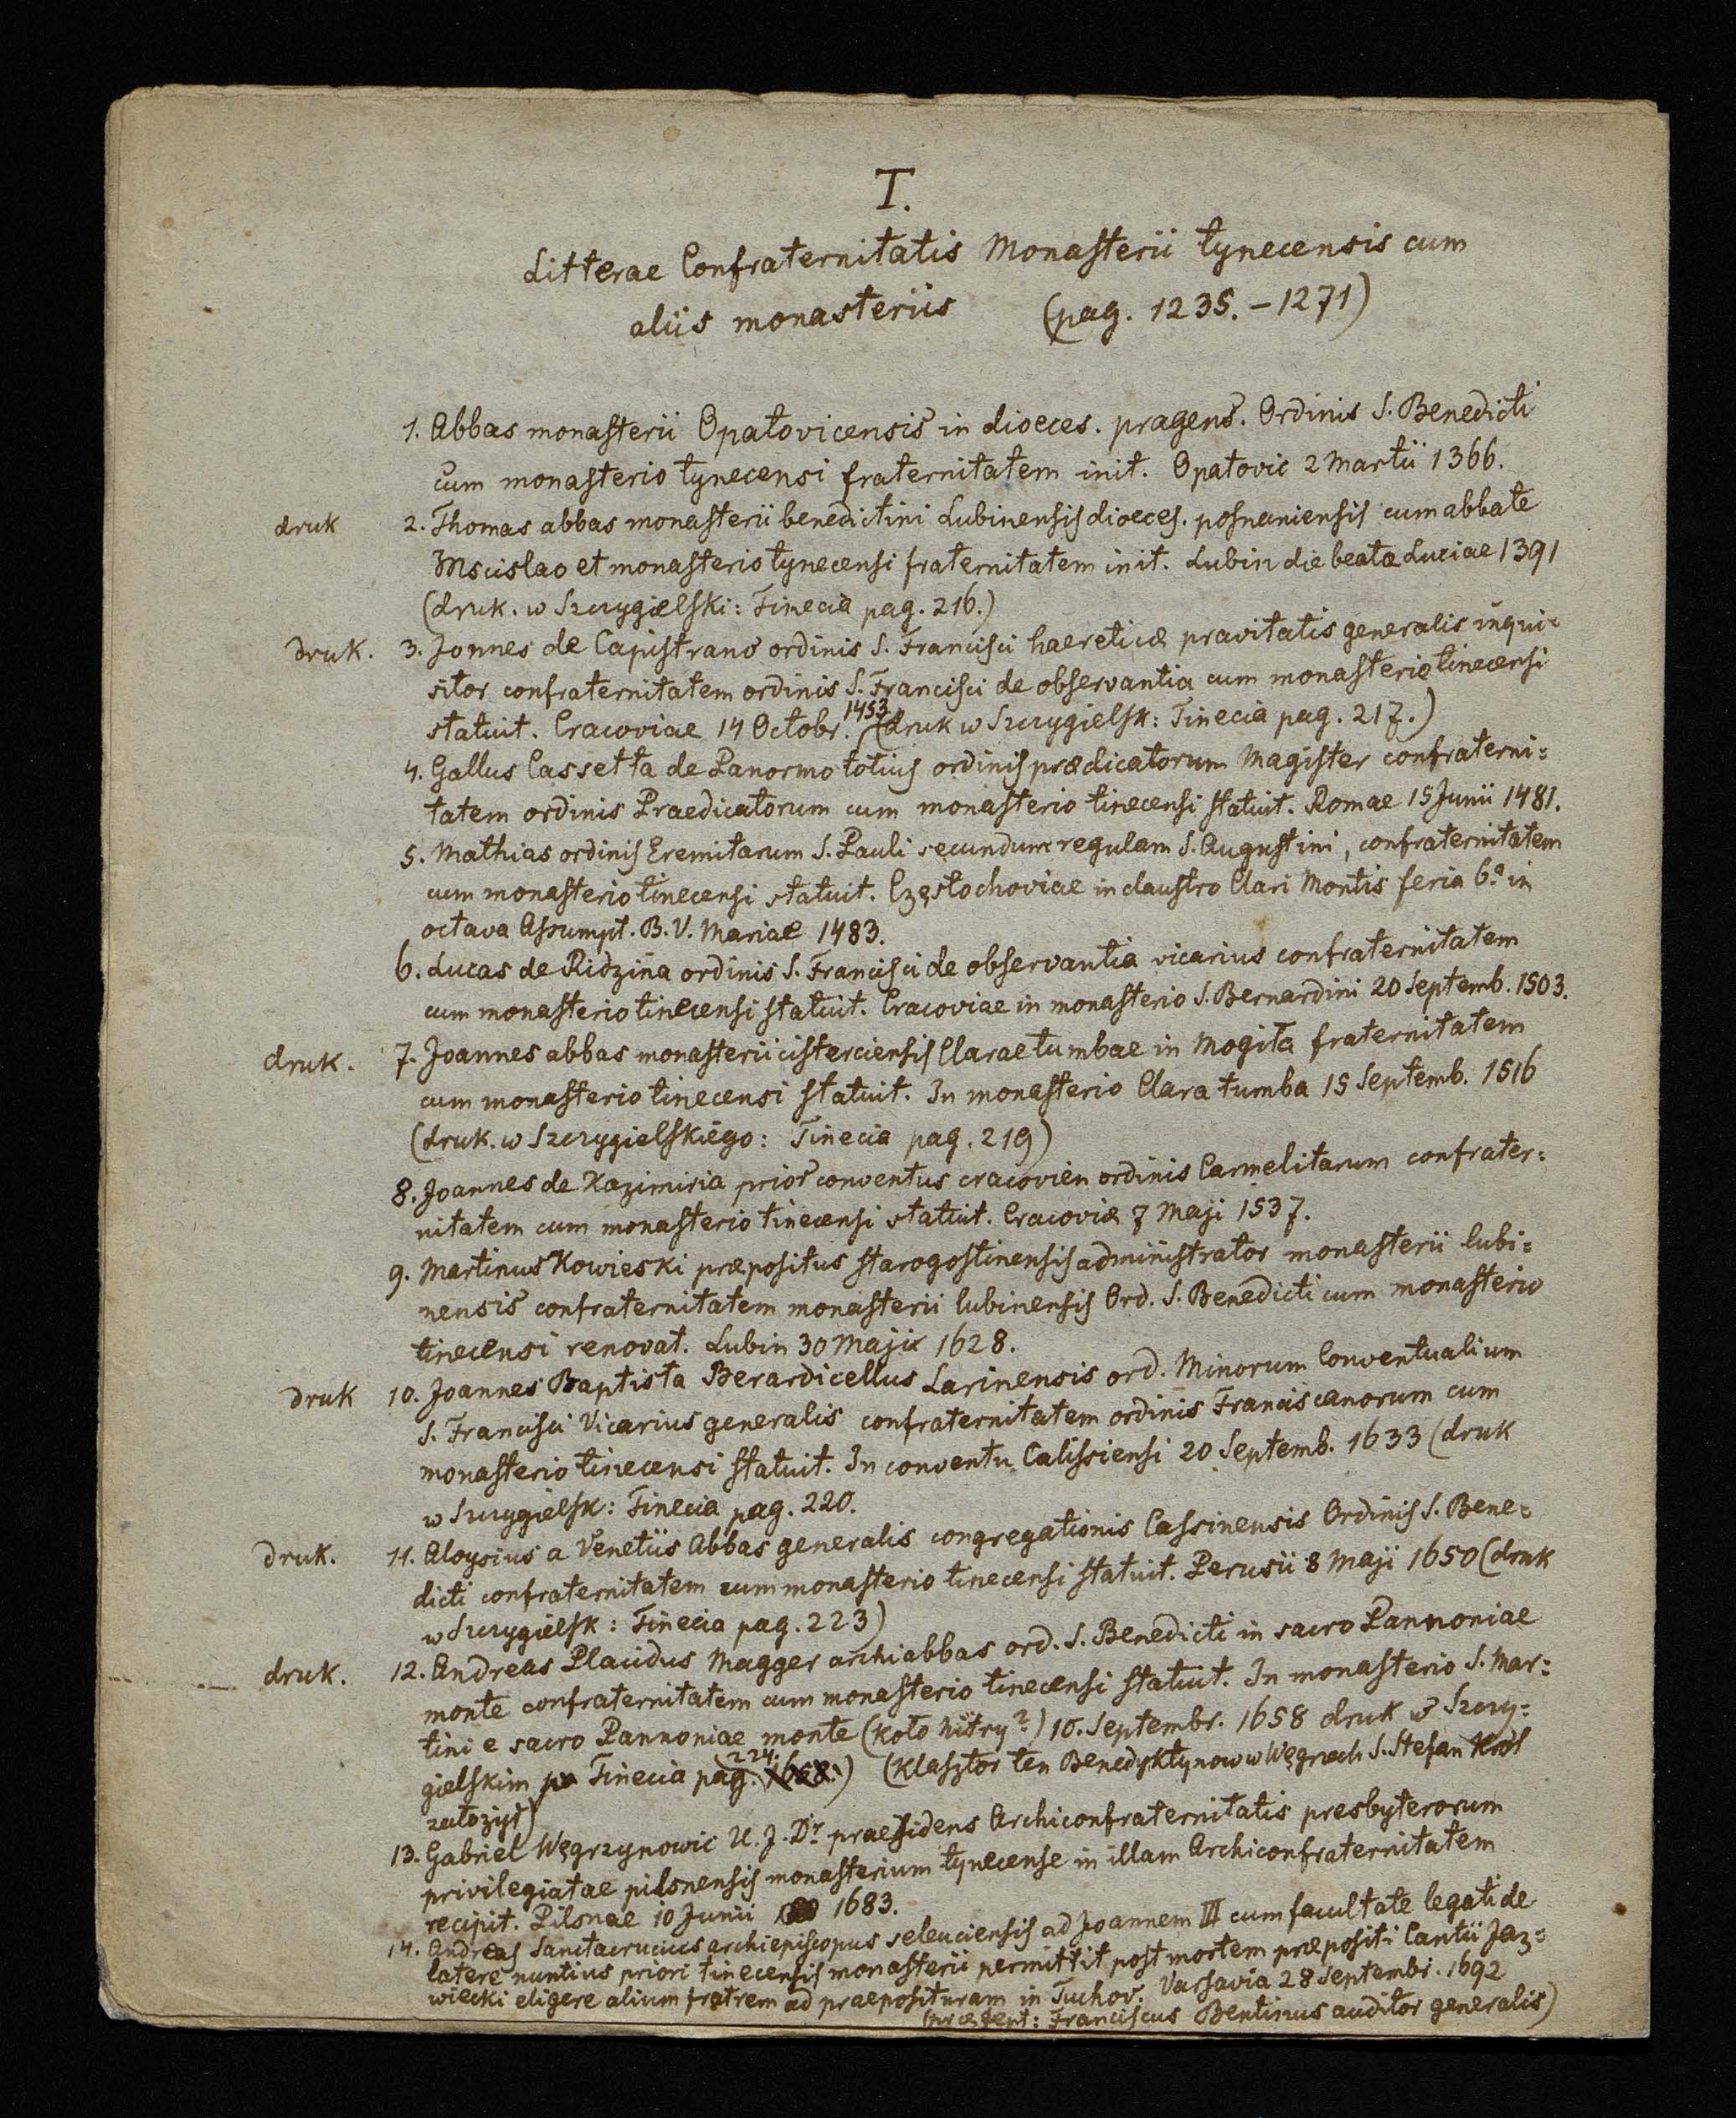 I.
Litterae Confraternitatis Monasterii tynecensis cum
aliis monasteriis (pag. 1235. – 1271)
1. Abbas monasterii Opatovicensis in dioeces. pragens. Ordinis S. Benedicti
cum monasterio tynecensi fraternitatem init. Opatovic 2 Martii 1366.
druk 2. Thomas abbas monasterii benedictini Lubinensis dioeces. posnaniensis cum abbate
Mscislao et monasterio tynecensi fraternitatem init. Lubin die beatae Luciae 1391
(druk. w Szczygielski: Tinecia pag. 216.)
druk. 3. Joannes de Capistrano ordinis S. Francisci haereticae pravitatis generalis inqui=
sitor confraternitatem ordinis S. Francisci de observantia cum monasterio tinecensi
statuit. Cracoviae 14 Octobr. 1453 (druk w Szczygielsk: Tinecia pag. 217.)
4. Gallus Cassetta de Panormo totius ordinis praedicatorum Magister confraterni=
tatem ordinis Praedicatorum cum monasterio tinecensi statuit. Romae 15 Junii 1481.
5. Mathias ordinis Eremitarum S. Pauli secundum regulam S. Augustini, confraternitatem
cum monasterio tinecensi statuit. Częstochoviae in claustro Clari Montis feria 6ª in
octava Assumpt. B. V. Mariae 1483.
6. Lucas de Ridzina ordinis S. Francisci de observantia vicarius confraternitatem
cum monasterio tinecensi statuit. Cracoviae in monasterio S. Bernardini 20 Septemb. 1503.
druk. 7. Joannes abbas monasterii cisterciensis Claraetumbae in Mogiła fraternitatem
cum monasterio tinecensi statuit. In monasterio Clara tumba 15 Septemb. 1516
(druk. w Szczygielskiego: Tinecia pag. 219)
8. Joannes de Kazimiria prior conventus cracovien ordinis Carmelitarum confrater=
nitatem cum monasterio tinecensi statuit. Cracoviae 7 Maji 1537.
9. Martinus Kowieski praepositus starogostinensis administrator monasterii lubi=
nensis confraternitatem monasterii lubinensis Ord. S. Benedicti cum monasterio
tinecensi renovat. Lubin 30 Maji 1628.
druk 10. Joannes Baptista Berardicellus Larinensis ord. Minorum Conventualium
S. Francisci Vicarius generalis confraternitatem ordinis Franciscanorum cum
monasterio tinecensi statuit. In conventu Calissiensi 20 Septemb. 1633 (druk
w Szczygielsk: Tinecia pag. 220.
druk. 11. Aloysius a Venetiis Abbas generalis congregationis Cassinensis Ordinis S. Bene=
dicti confraternitatem cum monasterio tinecensi statuit. Perusii 8 Maji 1650 (druk
w Szczygielsk: Tinecia pag. 223)
druk. 12. Andreas Placidus Magger archiabbas ord. S. Benedicti in sacro Pannoniae
monte confraternitatem cum monasterio tinecensi statuit. In monasterio S. Mar=
tini e sacro Pannoniae monte (koło Nitry?) 10. Septembr. 1658 druk w Szczy=
gielskim Tinecia pag. 224. 1658.) (Klasztor ten Benedyktynow w Węgrach S. Stefan Król
założył)
13. Gabriel Węgrzynowic U. J. Dr. praesidens Archiconfraternitatis presbyterorum
privilegiatae pilsnensis monasterium tynecense in illam Archiconfraternitatem
recipit. Pilsnae 10 Junii 1683.
14. Andreas Sanctacrucius archiepiscopus seleuciensis ad Joannem III cum facultate legati de
latere nuntius priori tinecensis monasterii permittit post mortem praepositi Cantii Jaz=
wiecki eligere alium fratrem ad praeposituram in Tuchov. Varsavia 28 Septembr. 1692
(praesent: Franciscus Bentinus auditor generalis)